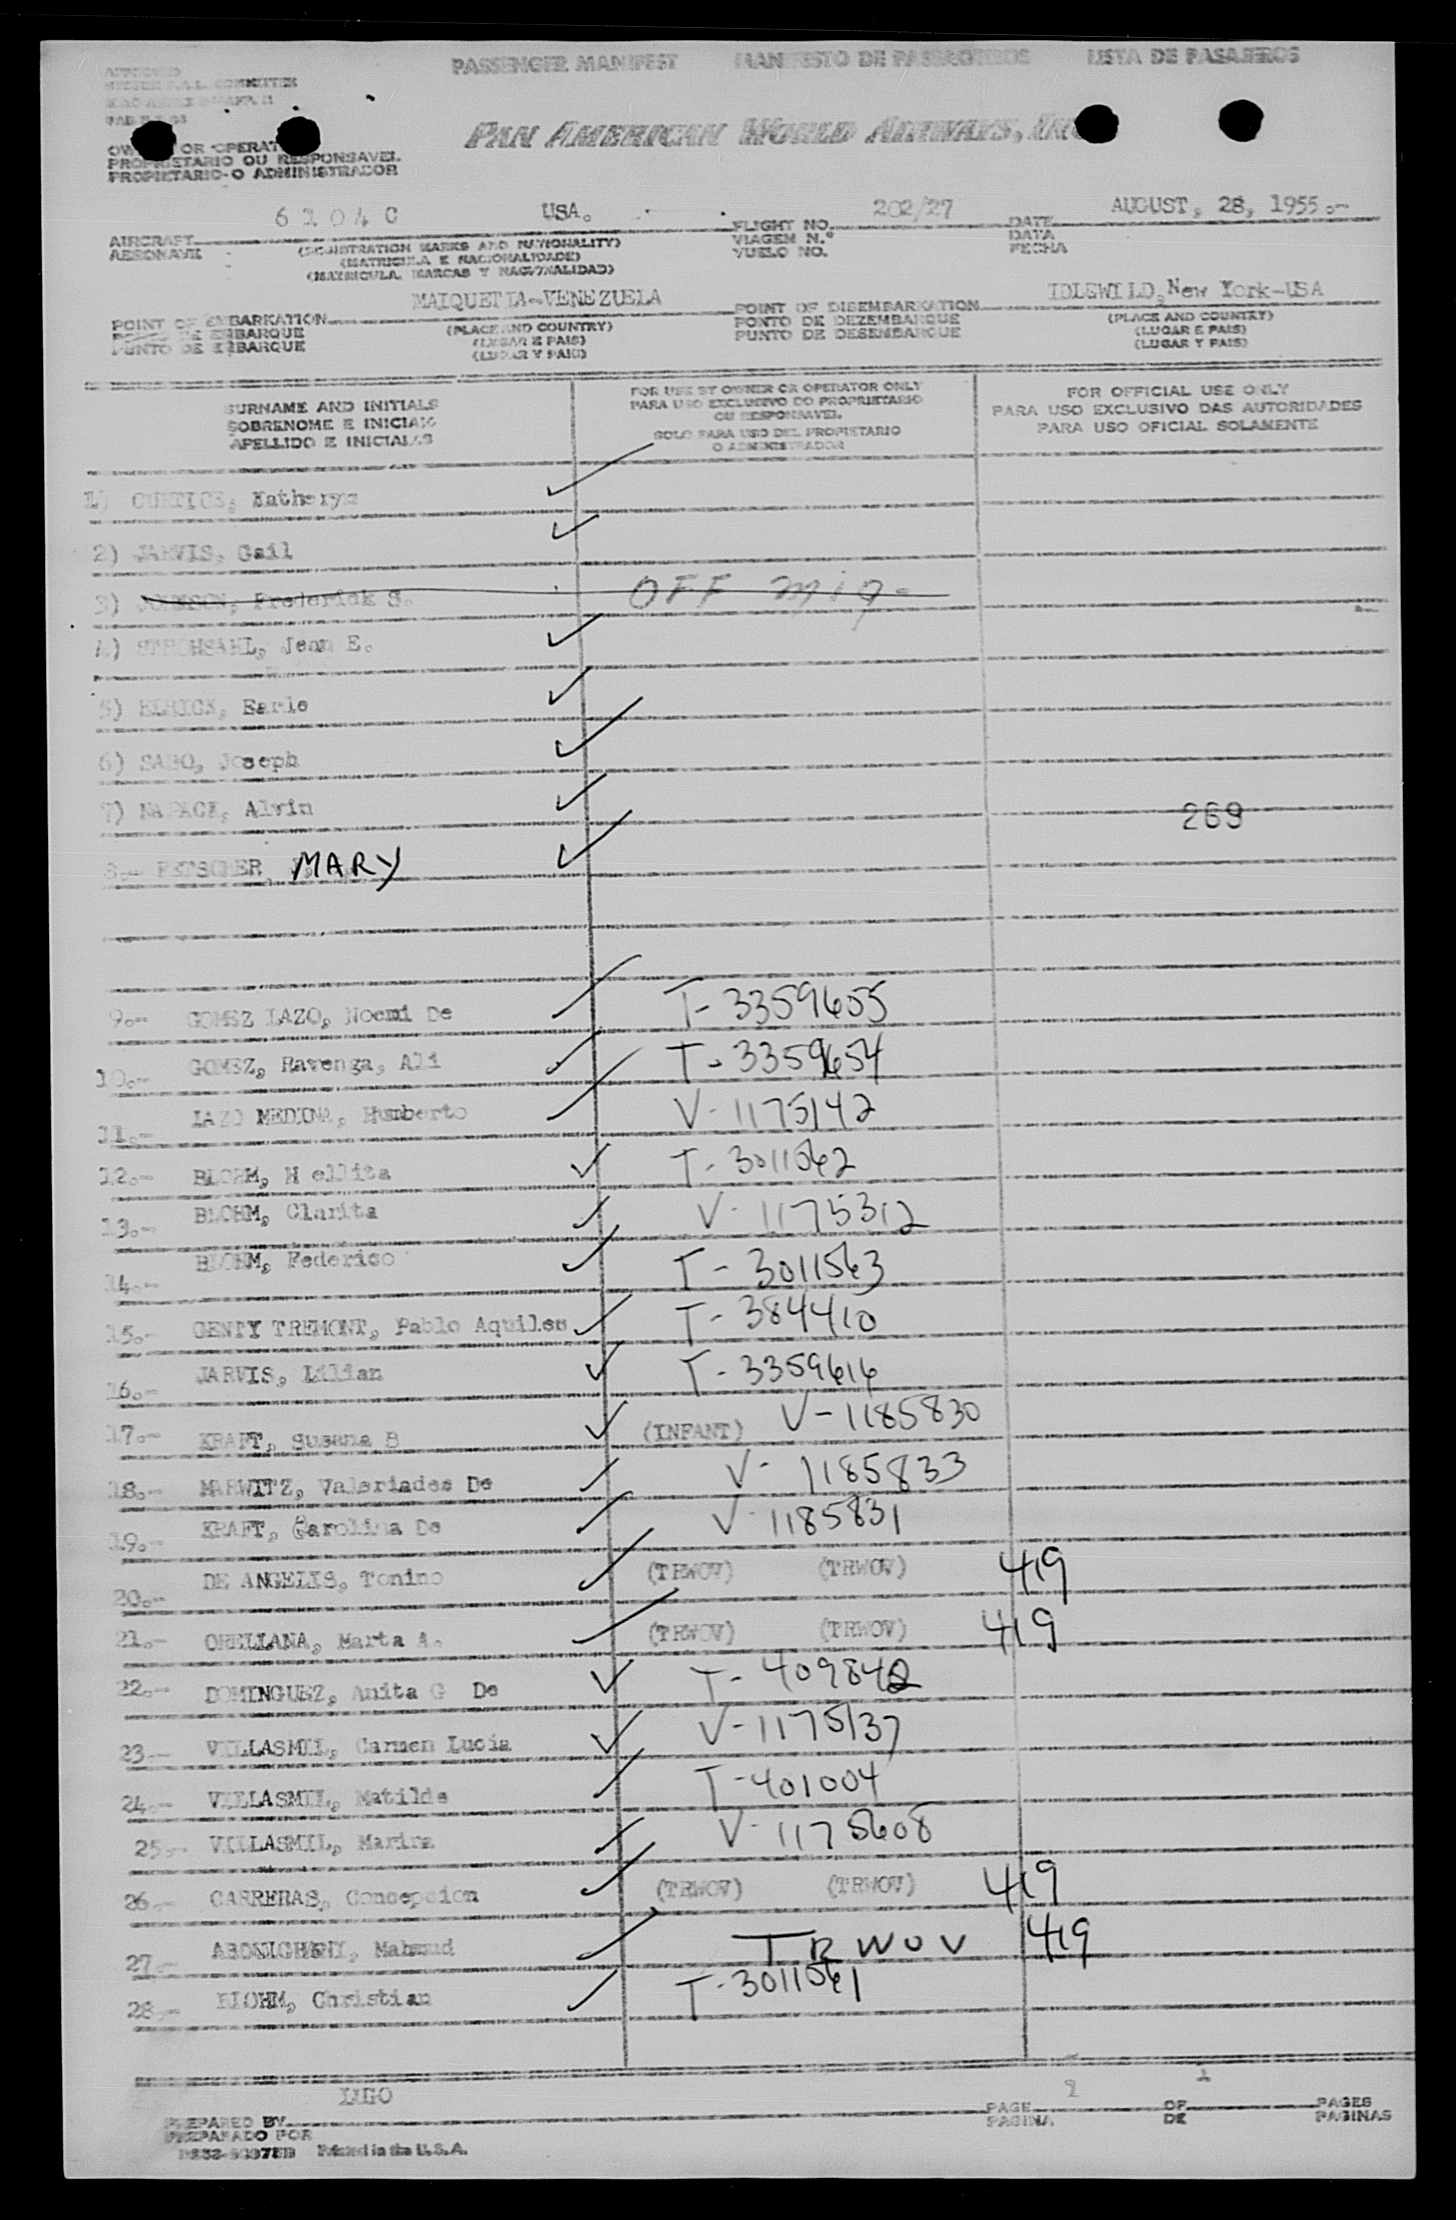 PASSENGER MANIFEST MANIFESTO DE PASSAGEIROS LISTA DE PASAJEROS
PAN AMERICAN WORLD AIRWAYS, INC
OR OPERAT
PROPRIETARIO OU RESPONSAVEL
PROPIETARIO O ADMINISTRADOR
6104C USA. 202/27 AUGUST, 28, 1955.-
AIRCRAFT FLIGHT NO. DATE
AERONAVE VIAGEM N.º DATA
VUELO NO. FECHA
(REGISTRATION MARKS AND NATIONALITY)
(MATRICULA E NACIONALIDADE)
(MATRICULA, MARCAS Y NACIONALIDAD)
MAIQUETIA-VENEZUELA IDLEWILD, New York-USA
POINT OF EMBARKATION (PLACE AND COUNTRY) POINT OF DISEMBARKATION (PLACE AND COUNTRY)
DE EMBARQUE (LUGAR E PAIS) PONTO DE DEZEMBARQUE (LUGAR E PAIS)
PUNTO DE EMBARQUE (LUGAR Y PAIS) PUNTO DE DESEMBARQUE (LUGAR Y PAIS)
SURNAME AND INITIALS
SOBRENOME E INICIAIS
APELLIDO E INICIALES
FOR USE BY OWNER OR OPERATOR ONLY
PARA USO EXCLUSIVO DO PROPRIETARIO
OU RESPONSAVEL
SOLO PARA USO DEL PROPIETARIO
O ADMINISTRADOR
FOR OFFICIAL USE ONLY
PARA USO EXCLUSIVO DAS AUTORIDADES
PARA USO OFICIAL SOLAMENTE
1) CURTICE, Katheryn
2) JARVIS, Gail
3) JOHNSON, Frederick S. OFF mig-
4) STROHSAHL, Jean E.
5) Earle
6) SABO, Joseph
7) Alvin 269
8.- MARY
9.- GOMEZ LAZO, Noemi De T-3359655
10.- GOMEZ, Ravenga, Ali T-3359654
11.- LAZO MEDINA, Humberto V-1175142
12.- BLOHM, Nellita T-3011562
13.- BLOHM, Clarita V-1175312
14.- BLOHM, Federico T-3011563
15.- GENTY TREMONT, Pablo Aquiles T-384410
16.- JARVIS, Lilian T-3359616
17.- KRAFT, Susana B (INFANT) V-1185830
18.- MARWITZ, Valeriades De V-1185833
19.- KRAFT, Carolina De V-1185831
20.- DE ANGELIS, Tonino (TRWOV) (TRWOV) 419
21.- ORELLANA, Marta A. (TRWOV) (TRWOV) 419
22.- DOMINGUEZ, Anita G De T-409842
23.- VILLASMIL, Carmen Lucia V-1175137
24.- VILLASMIL, Matilde T-401004
25.- VILLASMIL, Marira V-1175608
26.- CARRERAS, Concepcion (TRWOV) (TRWOV) 419
27.- Mahmud TRWOV 419
28.- BLOHM, Christian T-3011561
LUGO
PREPARED BY PAGE 1 OF 1 PAGES
PREPARADO POR PAGINA DE PAGINAS
Printed in the U.S.A.